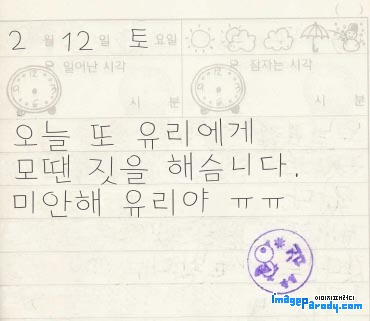 2 월 12 일 토 요일
일어난 시각 잠자는 시각
시 분 시 분
오늘 또 유리에게
모땐 짓을 해슴니다.
미안해 유리야 ㅠㅠ
이미지패러디
imageparody.com